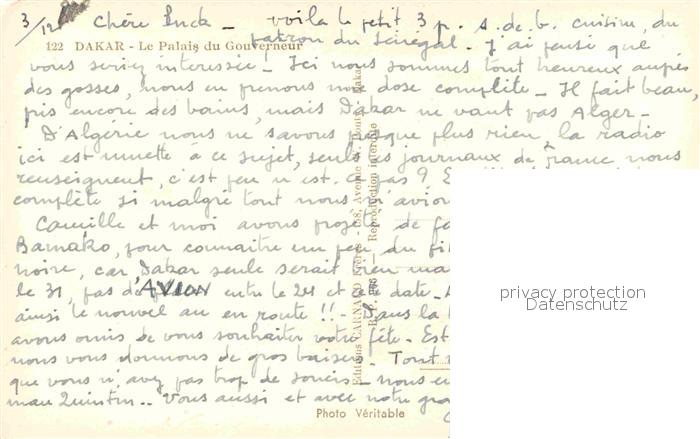 3/12 Chère Inda _ voilà le petit 3 p. s. de. b. cuisine, du
122 DAKAR - Le Palais du Gouverneur
patron du Sénégal _ J'ai pensé que
vous seriez interessée _ Ici nous sommes tout heureux auprès
des gosses, nous en prenons notre dose complète _ Il fait beau,
pris encore des bains, mais Dakar ne vaut pas Alger _
D'Algérie nous ne savons presque plus rien, la radio
ici est muette à ce sujet, seuls les journaux de france nous
renseignent, c'est peu n'est-ce pas ?
complète si malgré tout nous
Camille et moi avons projeté de
Bamako, pour connaitre un peu du
noire, car Dakar seule serait bien
le 31, pas d'AVION entre le 24 et cette date _
ainsi le nouvel an en route !! - Dans la
avons omis de vous souhaiter votre fête _ Est
nous vous donnons de gros baisers _ Tout
que vous n'avez pas trop de soucis _ nous
man Quintin _ Vous aussi et avec notre
Editions CARNAUD Frères - 68, Avenue W. Ponty - Dakar
Reproduction interdite
Photo Véritable
privacy protection
Datenschutz